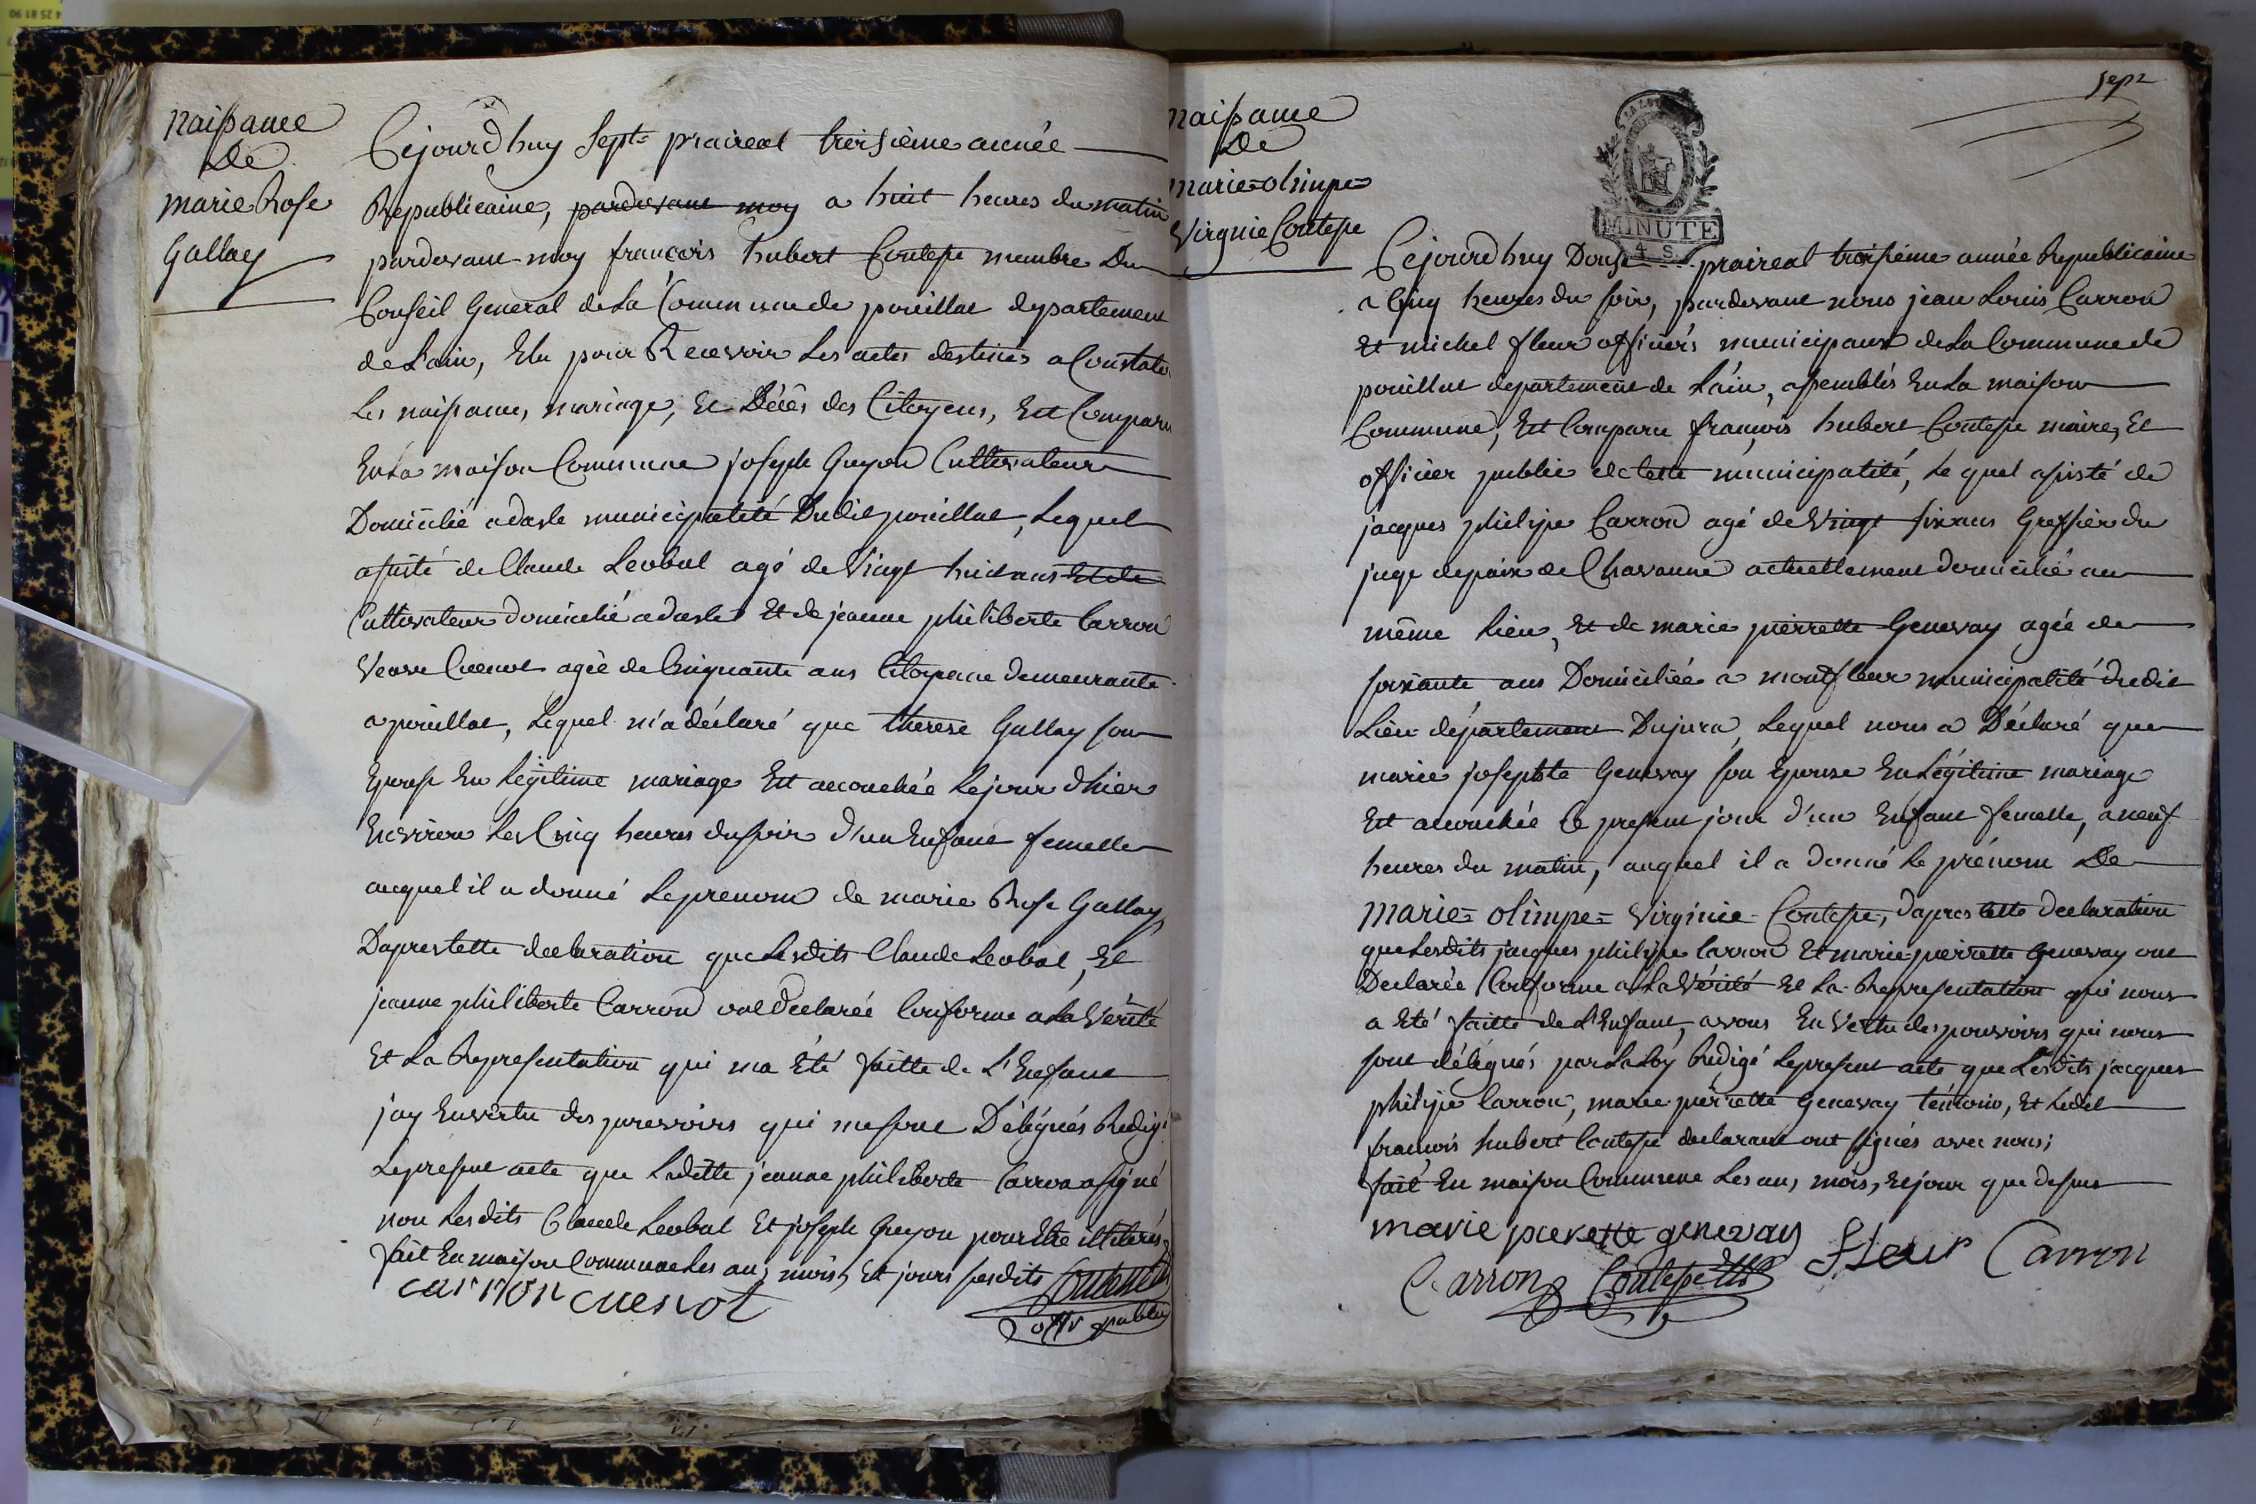 Naissance
De
marie Rose
Gallay
Cejourd'huy Sept prairéal troisième année
Republicaine, pardevant moy a huit heures du matin
pardevant moy françois hubert Coutepe membre Du
Conseil General de La Commune de pouillat departement
de L'ain, Elu pour Recevoir Les actes destinés a Constater
Les naissances, mariage, et Décès des Citoyens, Est Comparu
En La maison Commune joseph Guyon Cultivateur
Domicilié a dasle municipalité Dudit pouillat, Lequel
assisté de Claude Leobal agé de Vingt huit ans Et de
Cultivateur domicilié a dasle Et de jeanne philiberte Carron
Veuve Cuenot agée de Cinquante ans Citoyenne demeurante
a pouillat, Lequel m'a déclaré que therese Gallay son
Epouse En Légitime mariage Est accouchée Le jour d'hier
Environ Les Cinq heures du soir d'un Enfant femelle
auquel il a donné Le prenom de marie Rose Gallay,
D'apres cette declaration que Lesdits Claude Leobal, Et
jeanne philiberte Carron ont déclarée Conforme a La Vérité
Et La Representation qui m'a Été faitte de L'Enfant
j'ay En vertu des pouvoirs qui me sont Délégués Redigé
Le present acte que Laditte jeanne philiberte Carron a signé
non Lesdits Claude Leobal Et joseph Guyon pour être illiterés,
fait En maison Commune Les an, mois, Et jours susdits
carron cuenot
offr public
Sept
MINUTE
4 S
Naissance
De
marie=olimpe=
Virginie Coutepe
Cejourd'huy Douse prairéal troisième année Republicaine
a Cinq heures du soir, pardevant nous jean Louis Carron
Et michel fleur officiers municipaux de La Commune de
pouillat departement de L'ain, assemblés En La maison
Commune, Est Comparu françois hubert Coutepe maire, Et
officier public de cette municipalité, Le quel assisté de
jacques philipe Carron agé de Vingt six ans Greffier du
juge de paix de Chavanne actuellement domicilié au
même Lieu, Et de marie pierrette Genevay agée de
soixante ans Domiciliée a montfleur municipalité dudit
Lieu département Du jura, Lequel nous a Déclaré que
marie josephte Genevay son Epouse En Légitime mariage
Est accouchée Ce present jour d'un Enfant femelle, a neuf
heures du matin, auquel il a donné Le prénom De
marie=olimpe=Virginie Coutepe, d'apres cette declaration
que Lesdits jacques philipe Carron Et marie pierrette Genevay ont
Declarée Conforme a La Vérité Et La Representation qui nous
a Eté faitte de L'Enfant, avons En Vertu des pouvoirs qui nous
sont délégués par La Loy Redigé Le present acte que Lesdits jacques
philipe Carron, marie pierrette Genevay témoins, Et Ledit
françois hubert Coutepe declarant ont signés avec nous;
fait En maison Commune Les an, mois, Et jour que dessus
marie pierette genevay
fleur Carron
Carron Coutepe